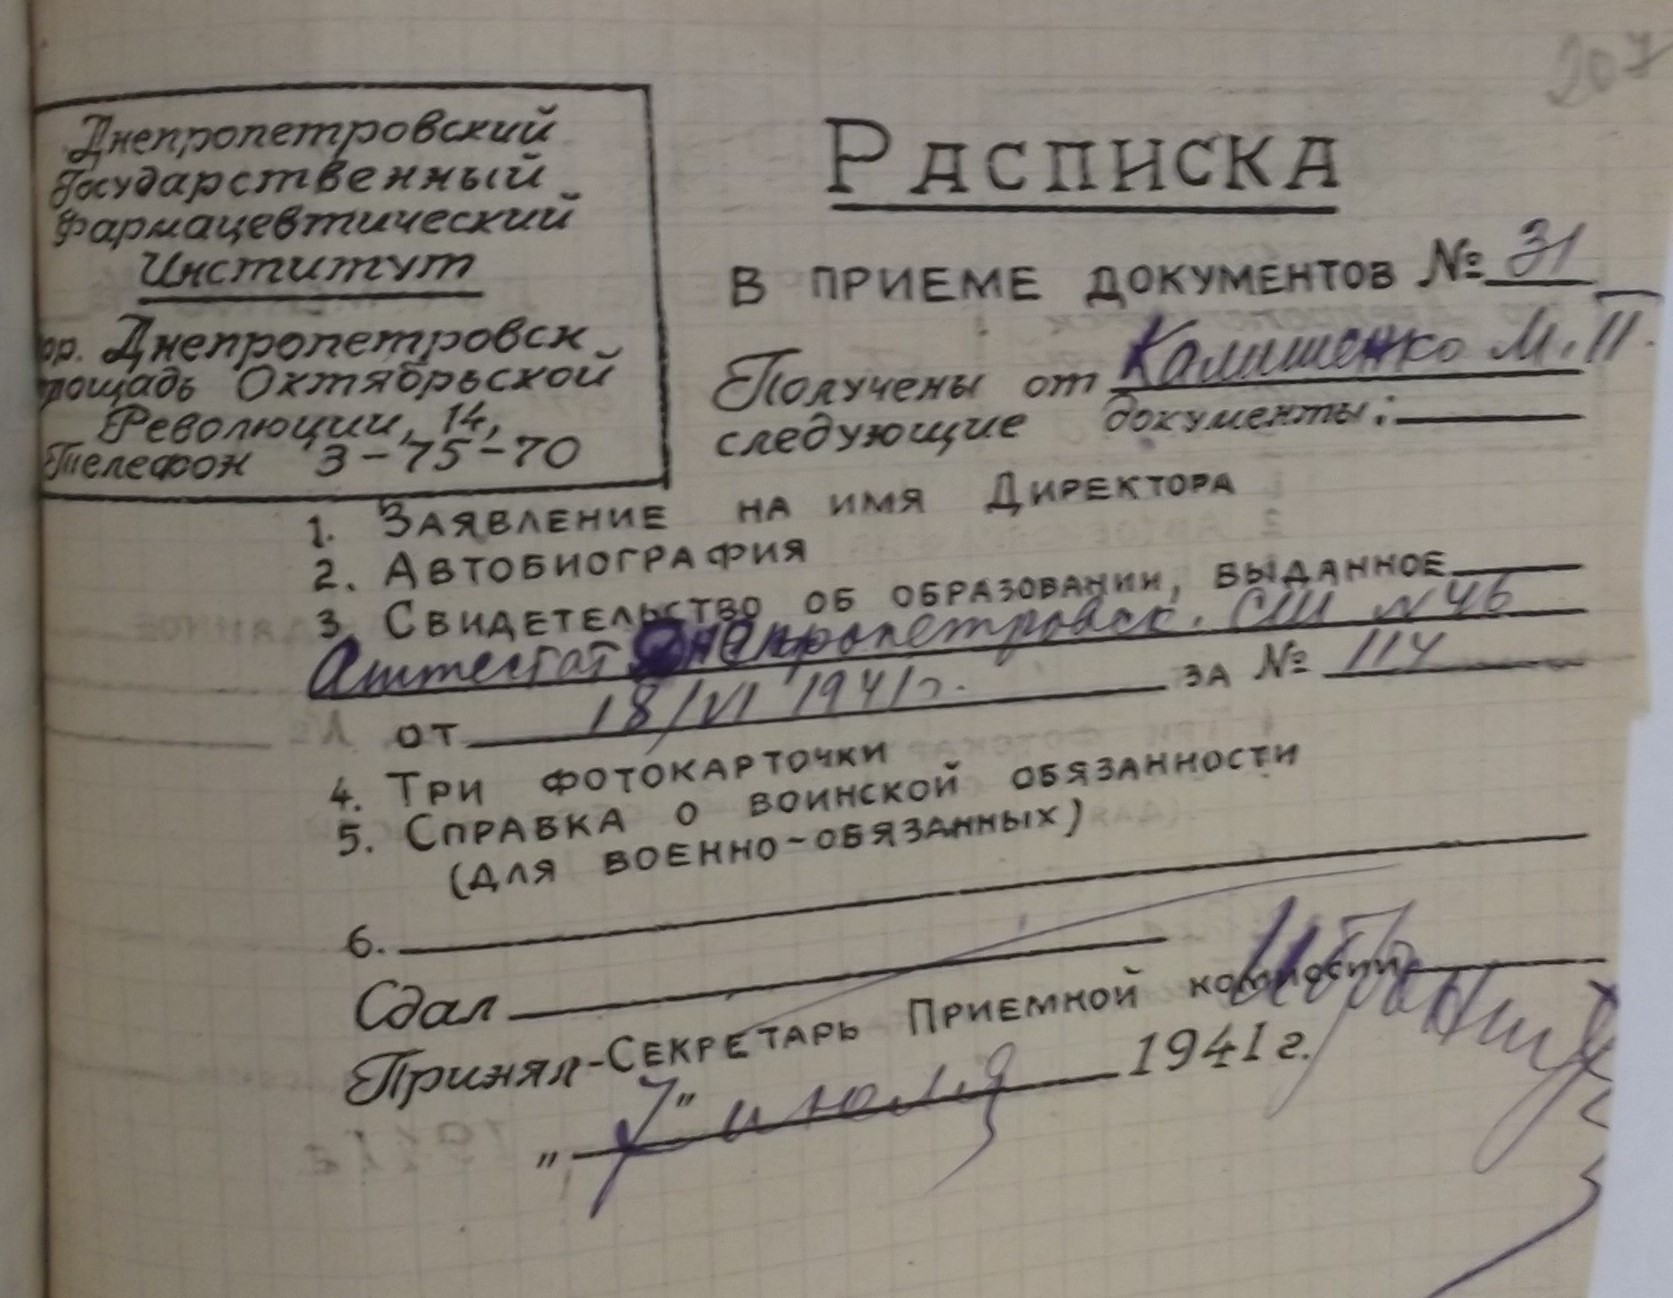 207
Днепропетровский
Государственный
Фармацевтический
Институт
гор. Днепропетровск
площадь Октябрьской
Революции, 14,
Телефон 3-75-70
Расписка
в приеме документов № 31
Получены от Калишенко М. П.
следующие документы:
1. Заявление на имя Директора
2. Автобиография
3. Свидетельство об образовании, выданное
Аттестат Днепропетровск. СШ N 46
от 18/VI 1941 г. за № 114
4. Три фотокарточки
5. Справка о воинской обязанности
(для военно-обязанных)
6.
Сдал
Принял-Секретарь Приемной комиссии
„ 7" июля 1941 г.